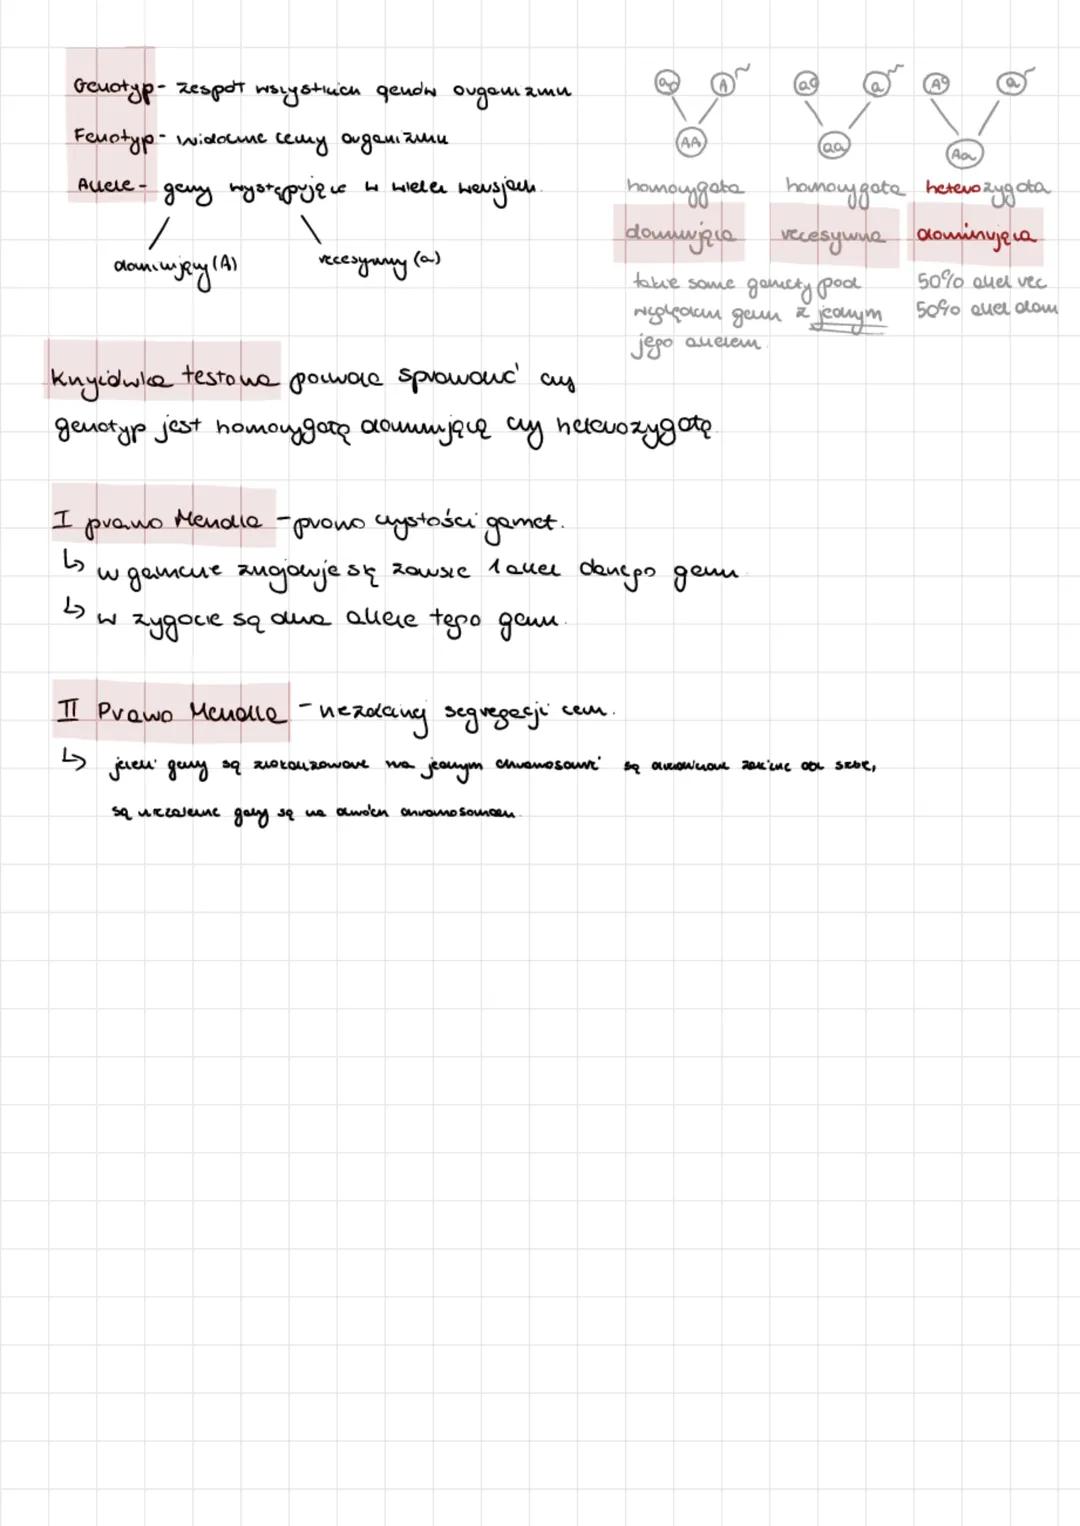 Genotyp - zespół wszystkich genów organizmu
Fenotyp - widoczne cechy organizmu
Allele - geny występujące w wielu wersjach.
dominujący (A) recesywny (a)
A
AA
a a
aa
A a
Aa
homozygota homozygota heterozygota
dominująca recesywna dominująca
takie same gamety pod
względem genu z jednym
jego allelem.
50% allel rec
50% allel dom
Krzyżówka testowa pozwala sprawdzić czy
genotyp jest homozygotą dominującą czy heterozygotą.
I prawo Mendla - prawo czystości gamet.
↳ w gamecie znajduje się zawsze 1 allel danego genu.
↳ w zygocie są dwa allele tego genu.
II Prawo Mendla - niezależnej segregacji cech.
↳ jeżeli geny są zlokalizowane na jednym chromosomie są dziedziczone zależnie od siebie,
są niezależne gdy są na dwóch chromosomach.